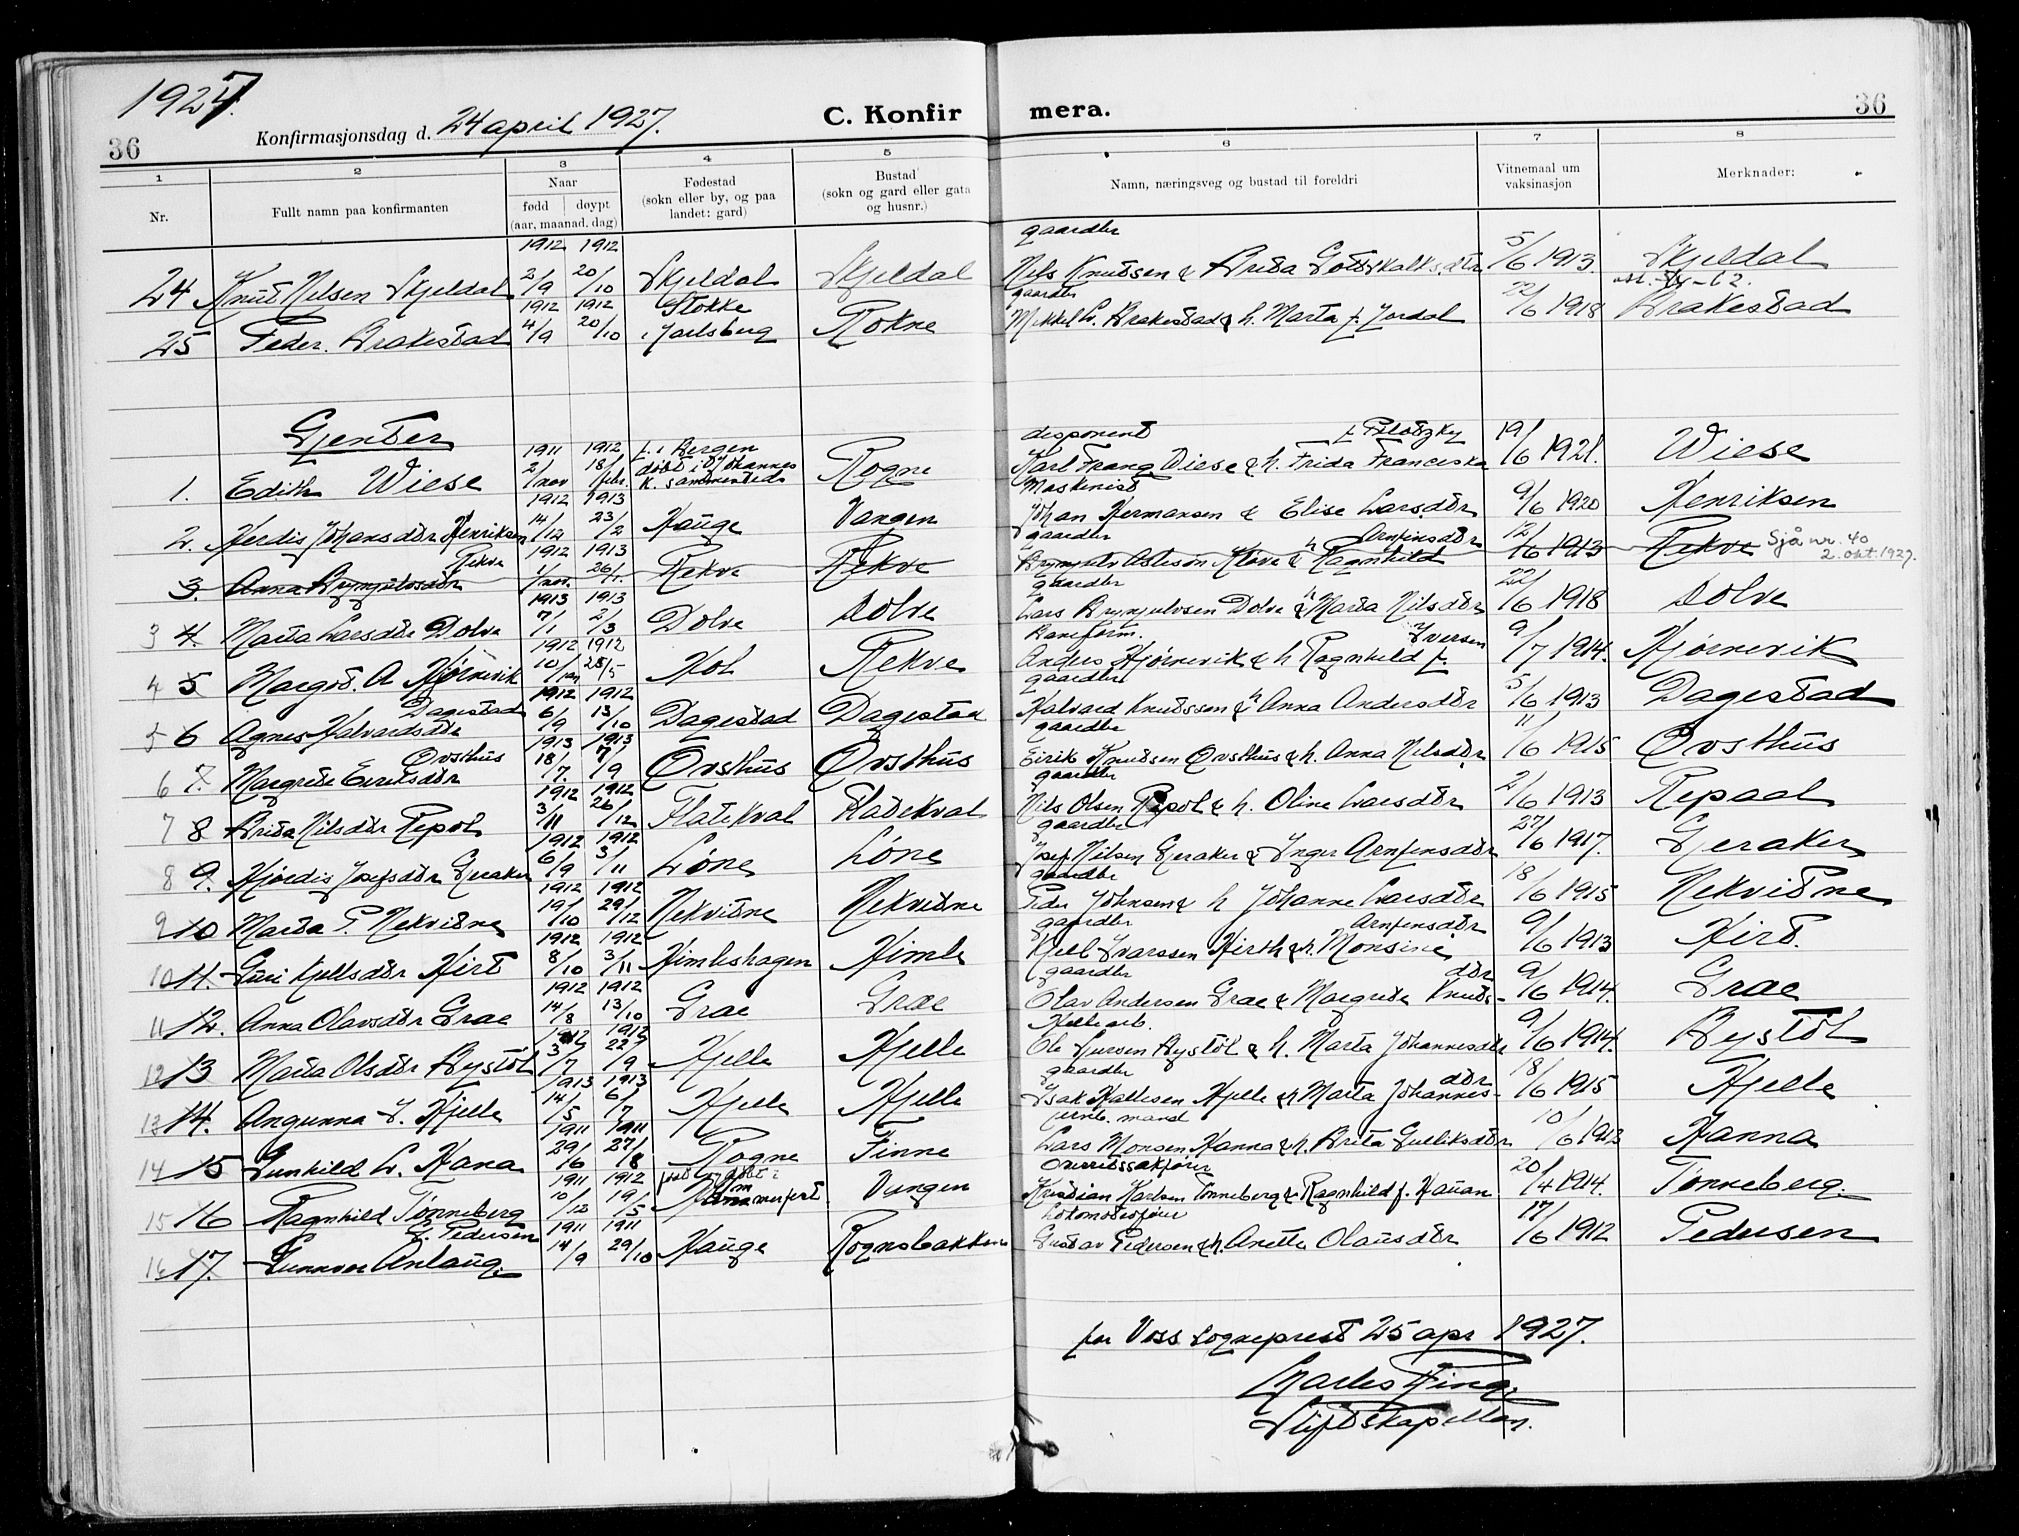 1927.
36 Konfirmasjonsdag d. 24 april 1927. C. Konfirmera. 36
1 2 3 4 5 6 7 8
Nr. Fullt namn paa konfirmanten Naar fødd døypt (aar, maanad, dag) Fødestad (sokn eller by, og paa landet: gard) Bustad (sokn og gard eller gata og husnr.) Namn, næringsveg og bustad til foreldri Vitnemaal um vaksinasjon Merknader:
1912 1912 gaardbr
24 Knut Nilsen Skjeldal 2/9 20/10 Skjeldal Skjeldal Nils Knudsen & Brita Gotskalksdtr 5/6 1913 Skjeldal
1912 1912 Stokke gaardbr
25 Peder Brakestad 4/9 20/10 i Jarlsberg Rokne Mikkel L. Brakestad & h. Marta f. Jordal 22/6 1918 Brakestad
Gjenter
1911 1912 f. i Bergen disponent
1. Edith Wiese 2/nov 18/febr. døbt i Johannes K. sammesteds Rogne Karl Franz Wiese & h. Frida Franceska 19/6 1921. Wiese
1912 1913 Maskinist
2. Herdis Johansdtr Henriksen 14/12 23/2 Hauge Vangen Johan Hermansen & Elise Larsdtr 9/6 1920 Henriksen
Rekve 1912 1913 gaardbr Arnfinsdtr
3. Anna Brynjulvsdtr 1/nov. 26/1. Rekve Rekve Brynjulv & h Ragnhild 12/6 1913 Rekve Sjå nr. 40 2. okt. 1927.
1913 1913 gaardbr
3 4. Marta Larsdtr Dolve 7/1 2/3 Dolve Dolve Lars Brynjulvsen Dolve & h Marta Nilsdtr 22/6 1918 Dolve
1912 1912 Baneform. Iversen
4 5 Margot. A Kjørnevik 10/ 25/5 Hol Rekve Anders Kjørnevik & h Ragnhild f. 9/7 1914. Kjørnevik
Dagestad 1912 1912 gaardbr
5 6 Agnes Halvardsdtr 6/9 13/10 Dagestad Dagestad Halvard Knutssen & h Anna Andersdtr 5/6 1913 Dagestad
Øvsthus 1913 1913 gaardbr
6 7. Margrete Eiriksdtr 18/7. 7/9 Øvsthus Øvsthus Eirik Knutsen Øvsthus & h. Anna Nilsdtr 11/6 1915 Øvsthus
1912 1912 gaardbr
7 8 Brita Nilsdtr Repol 3/11 26/12 Flatekval Flatekval Nils Olsen Repol & h. Oline Larsdtr 2/6 1913 Repaal
1912 1912 gaardbr
8 9. Hjørdis Josefsdtr Gjeraker 6/9 3/11 Løne Løne Josef Nilsen Gjeraker & Inger Arnfinsdtr 27/6 1917. Gjeraker
1912 1912 gaardbr
9 10 Marta P. Nekvitne 19/10 29/12 Nekvitne Nekvitne Peder Johnsen & h Johanne Larsdtr 18/6 1915 Nekvitne
1912 1912 gaardbr Arnfinsdtr
10 11. Guri Kjellsdtr Hirt 8/10 3/11 Himleshagen Himle Kjell Ivarssen Hirth & h. Monsine 9/6 1913 Hirt.
1912 1912 gaardbr
11 12. Anna Olavsdtr Græe 14/8 13/10 Græe Græe Olav Andersen Græe & Margrete Knutsdtr 9/6 1914. Græe
1912 1912
12 13 Marta Olsdtr Bystøl 3/7 22/9 Hjelle Hjelle Ole Sjursen Bystøl & h. Marta Johannesdtr 9/6 1914. Bystøl
1913 1913 gaardbr
13 14. Angunna I. Hjelle 14/5 6/7 Hjelle Hjelle Isak Hallesen Hjelle & h Marta Johannesdtr 18/6 1915 Hjelle
1911 1911 jernb. mand
14 15 Gunhild L. Hana 29/6 27/8 Rogne Finne Lars Monsen Hanna & h. Brita Gulliksdtr 10/6 1913 Hanna
1911 1912 født og døbt i Overretssakfører
15 16 Ragnhild Tønneberg 10/12 19/5 Hammerfest Vangen Kristian Karlsen Tønneberg & Ragnhild f. Hauan 20/4 1914. Tønneberg.
G. Pedersen 1911 1911 Lokomotivfører
16 17. Gunnvor Anlaug. 14/9 29/10 Hauge Rognsbakken Gustav Pedersen & h. Anette Olausdtr 17/6 1912 Pedersen
for Voss sogneprest 25 apr 1927.
Stiftskapellan.